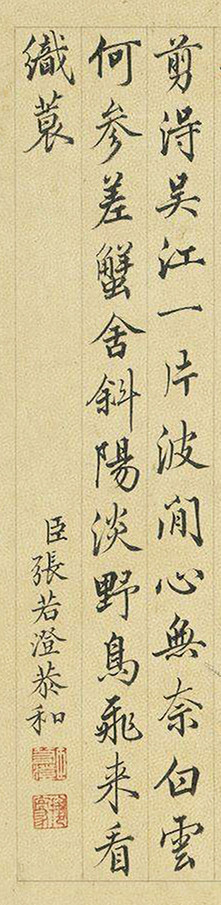 剪得吳江一片波閒心無奈白雲
何參差蟹舍斜陽淡野鳥飛来看
織蓑
臣張若澄恭和